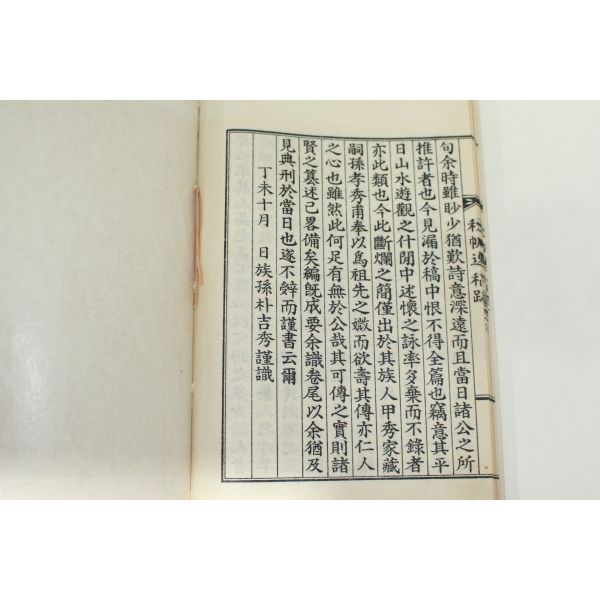 句余時雖眇少猶歎詩意深遠而且當日諸公之所
推許者也今見漏於稿中恨不得全篇也竊意其平
日山水遊觀之什閒中述懷之詠率多棄而不錄者
亦此類也今此斷爛之簡僅出於其族人甲秀家藏
嗣孫孝秀甫奉以爲祖先之媺而欲壽其傳亦仁人
之心也雖然此何足有無於公哉其可傳之實則諸
賢之纂述已畧備矣編旣成要余識卷尾以余猶及
見典刑於當日也遂不辤而謹書云爾
丁未十月　日族孫朴吉秀謹識